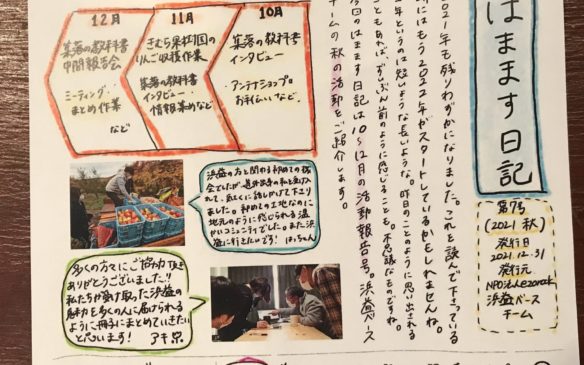 はまます日記
第7号
(2021 秋)
発行日
2021.12.31
発行元
NPO法人ezorock
浜益ベース
チーム
2021年も残りわずかになりました。これを読んで下さっている
はもう2022年がスタートしているかもしれませんね。
年というのは短いような長いような。昨日のことのように思い出される
こともあれば、ずいぶん前のように感じることも。不思議なものですね。
今回のはまます日記は10〜12月の活動報告号。浜益ベース
チームの秋の活動をご紹介します。
10月
集落の教科書
インタビュー
・アンテナショップの
お手伝いなど。
11月
きむら果樹園の
りんご収穫作業
集落の教科書
インタビュー・
情報集めなど
12月
集落の教科書
中間報告会
ミーティング・
まとめ作業
など
浜益の方と関わる初めての機
会でしたが、道外出身の私を受け入
れて、気さくに話しかけて下さり
ました。初めての土地なのに
地元のように感じられる温
かいコミュニティでした。また浜
益に行きたいです! はっちゃん
多くの方々にご協力頂き
ありがとうございました!!
私たちが受け取った浜益の
魅力を多くの人に届けられる
ように冊子にまとめていきたい
と思います! アキ